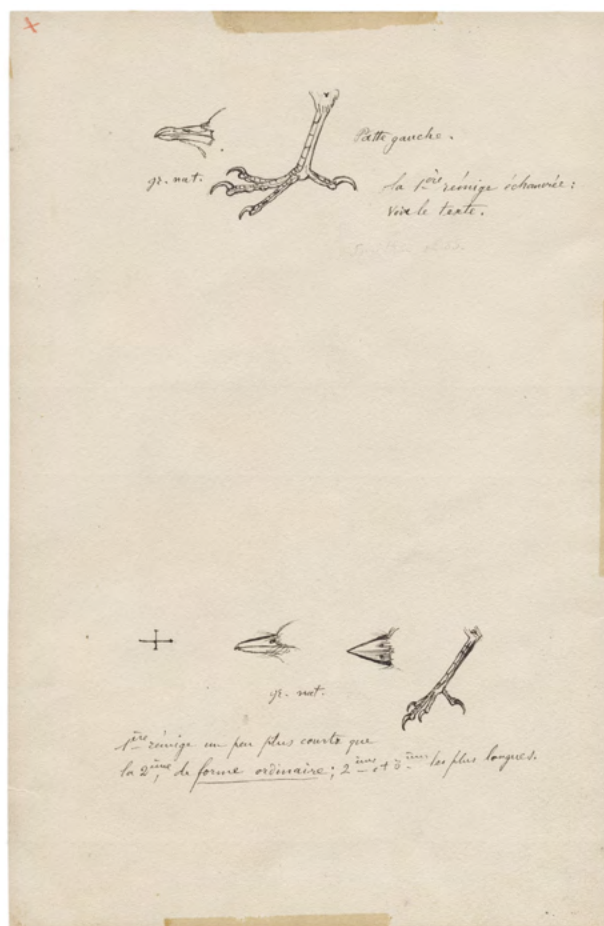 Patte gauche.
gr. nat.
la 1ère rémige échancrée:
Voir le texte.
gr. nat.
1ère rémige un peu plus courte que
la 2ème, de forme ordinaire; 2ème et 3ème les plus longues.